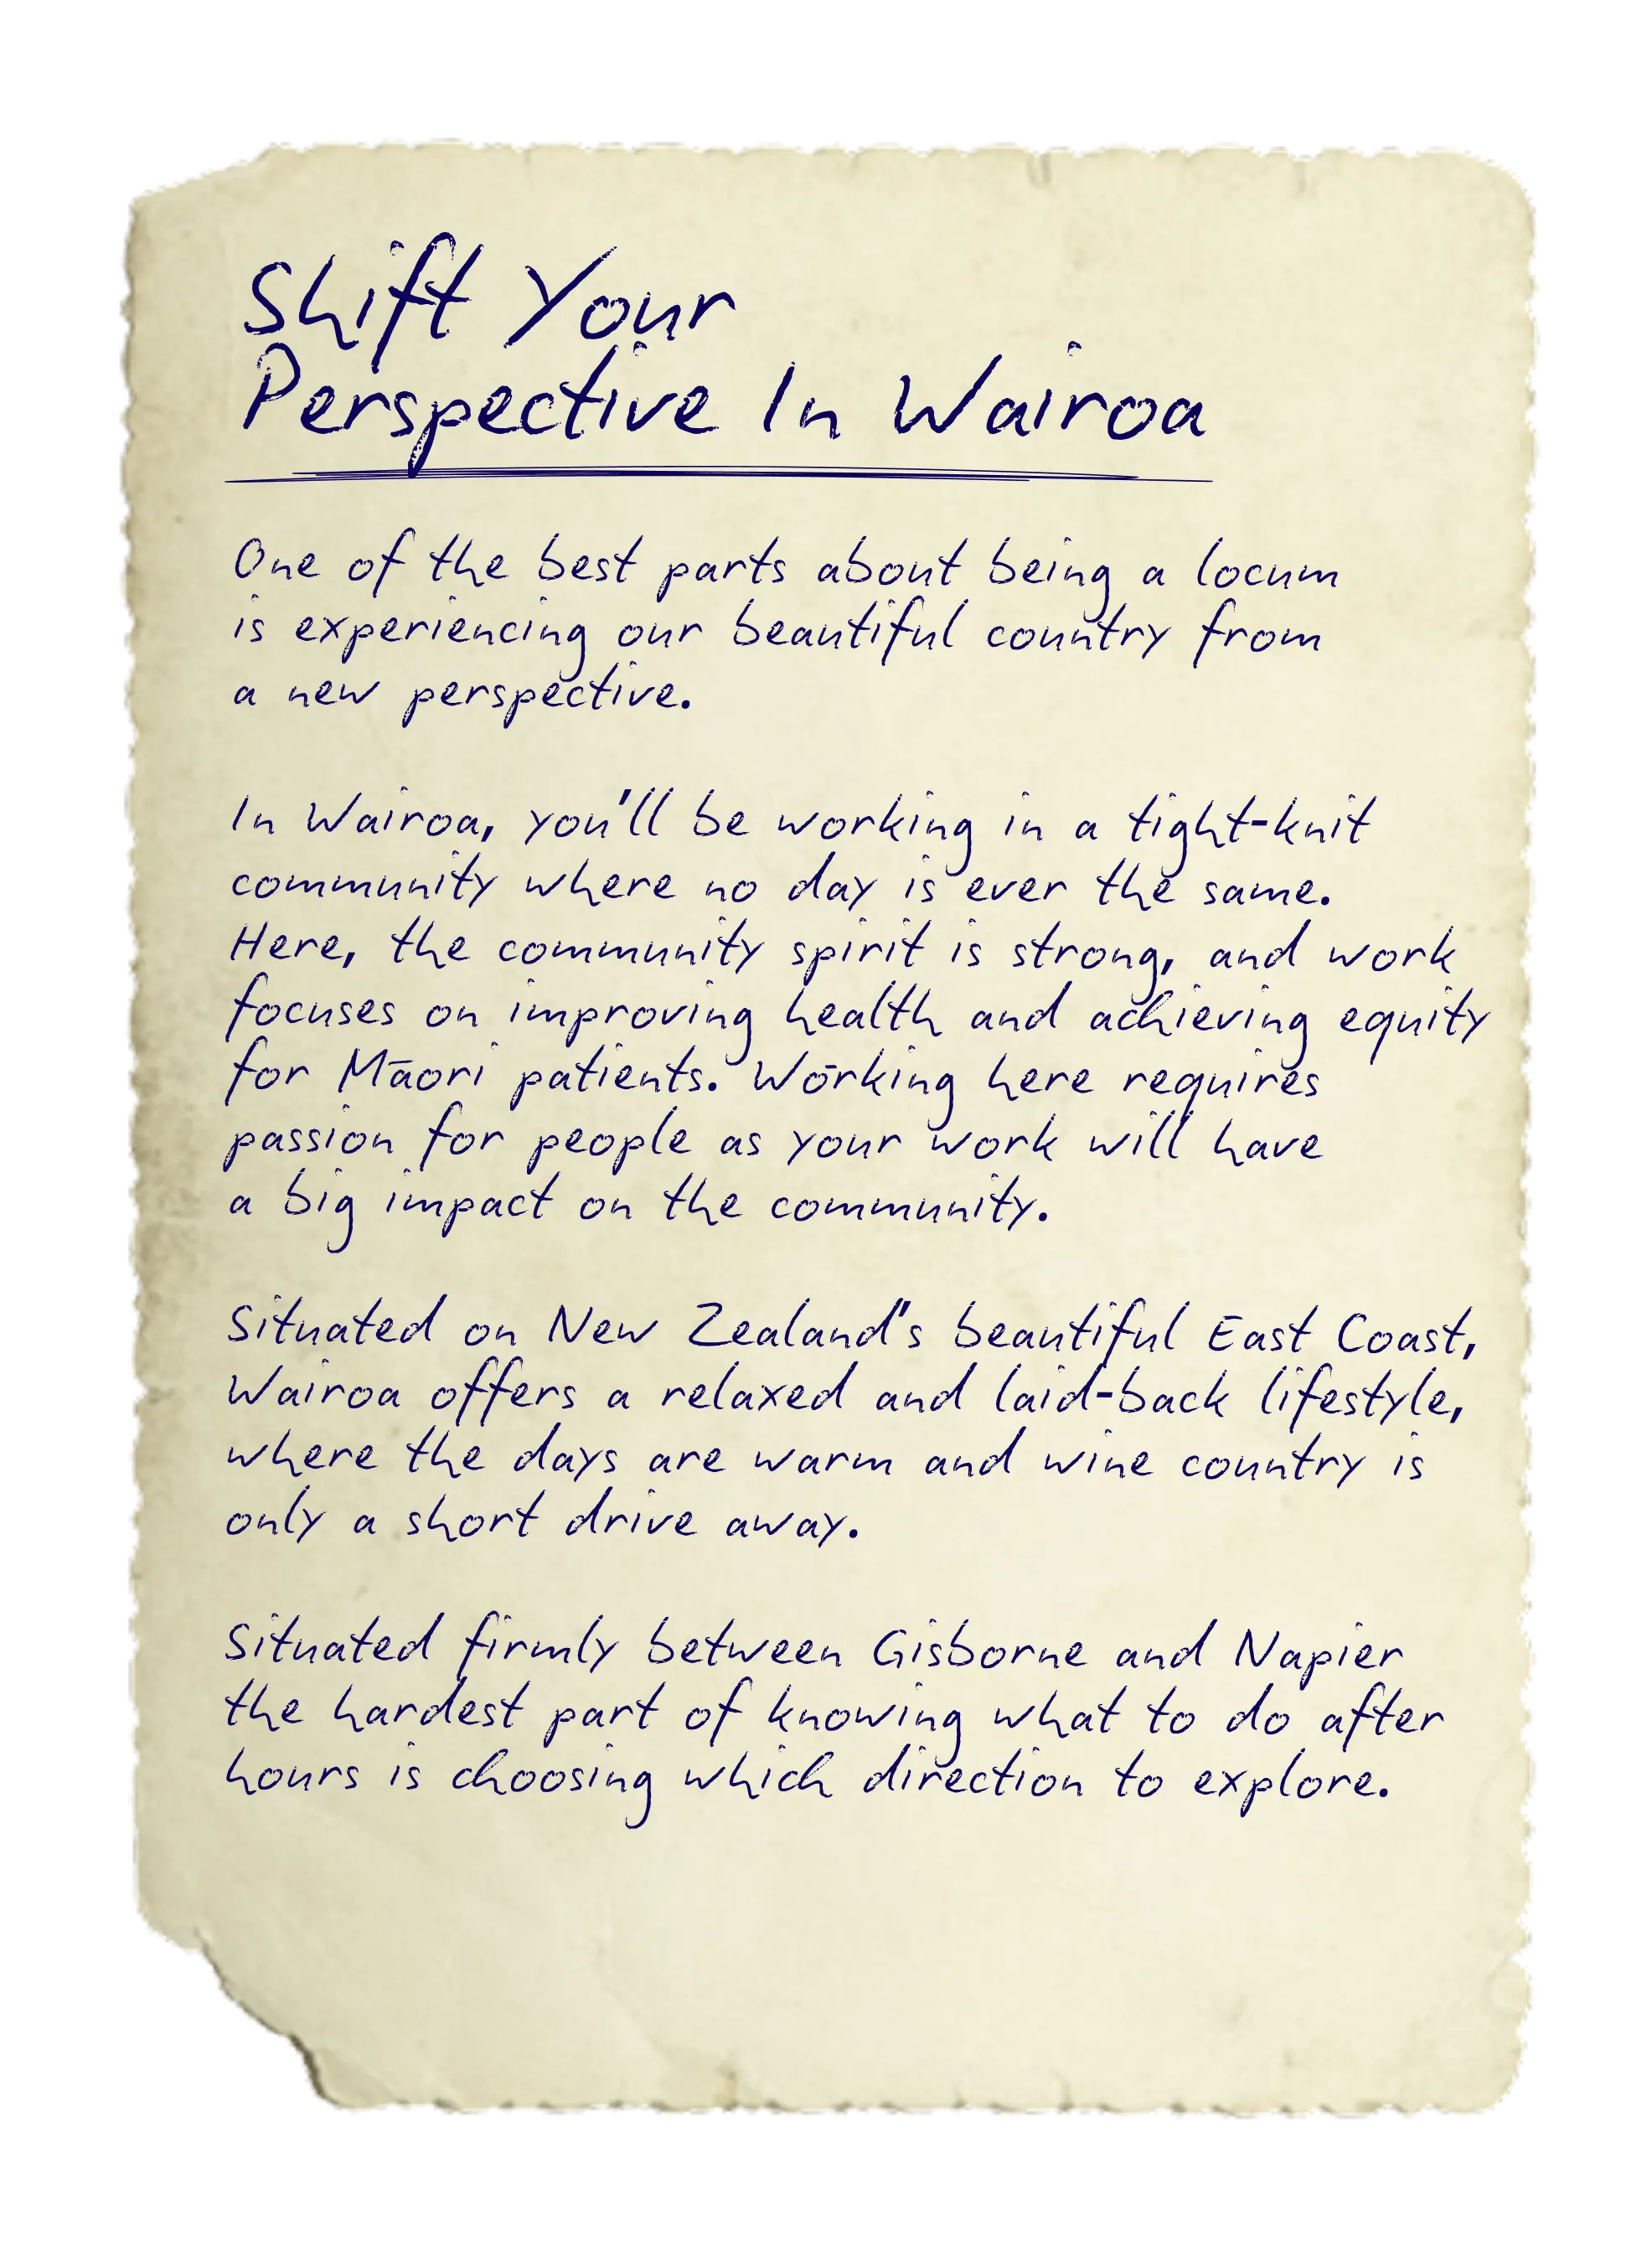 Shift Your
Perspective In Wairoa
One of the best parts about being a locum
is experiencing our beautiful country from
a new perspective.
In Wairoa, you'll be working in a tight-knit
community where no day is ever the same.
Here, the community spirit is strong, and work
focuses on improving health and achieving equity
for Māori patients. Working here requires
passion for people as your work will have
a big impact on the community.
Situated on New Zealand's beautiful East Coast,
Wairoa offers a relaxed and laid-back lifestyle,
where the days are warm and wine country is
only a short drive away.
Situated firmly between Gisborne and Napier
the hardest part of knowing what to do after
hours is choosing which direction to explore.